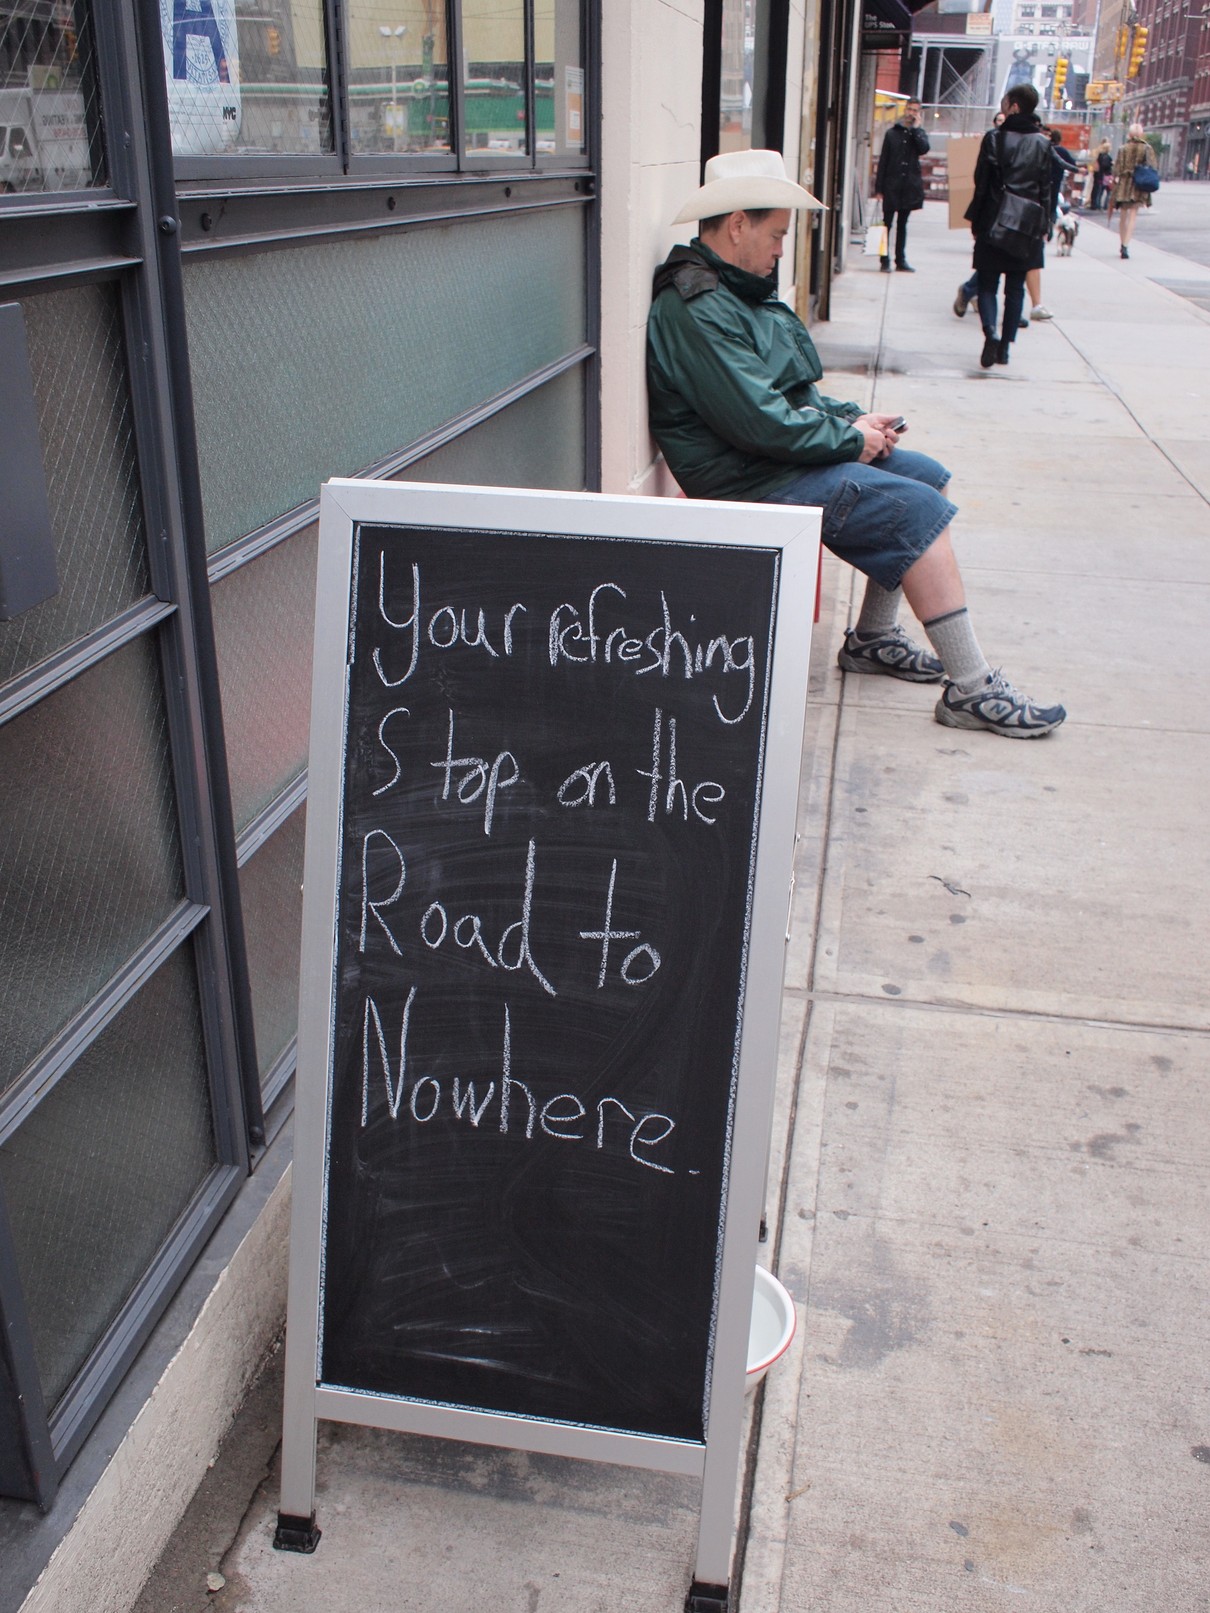 A
NYC
The
Your refreshing
Stop on the
Road to
Nowhere.
N
N